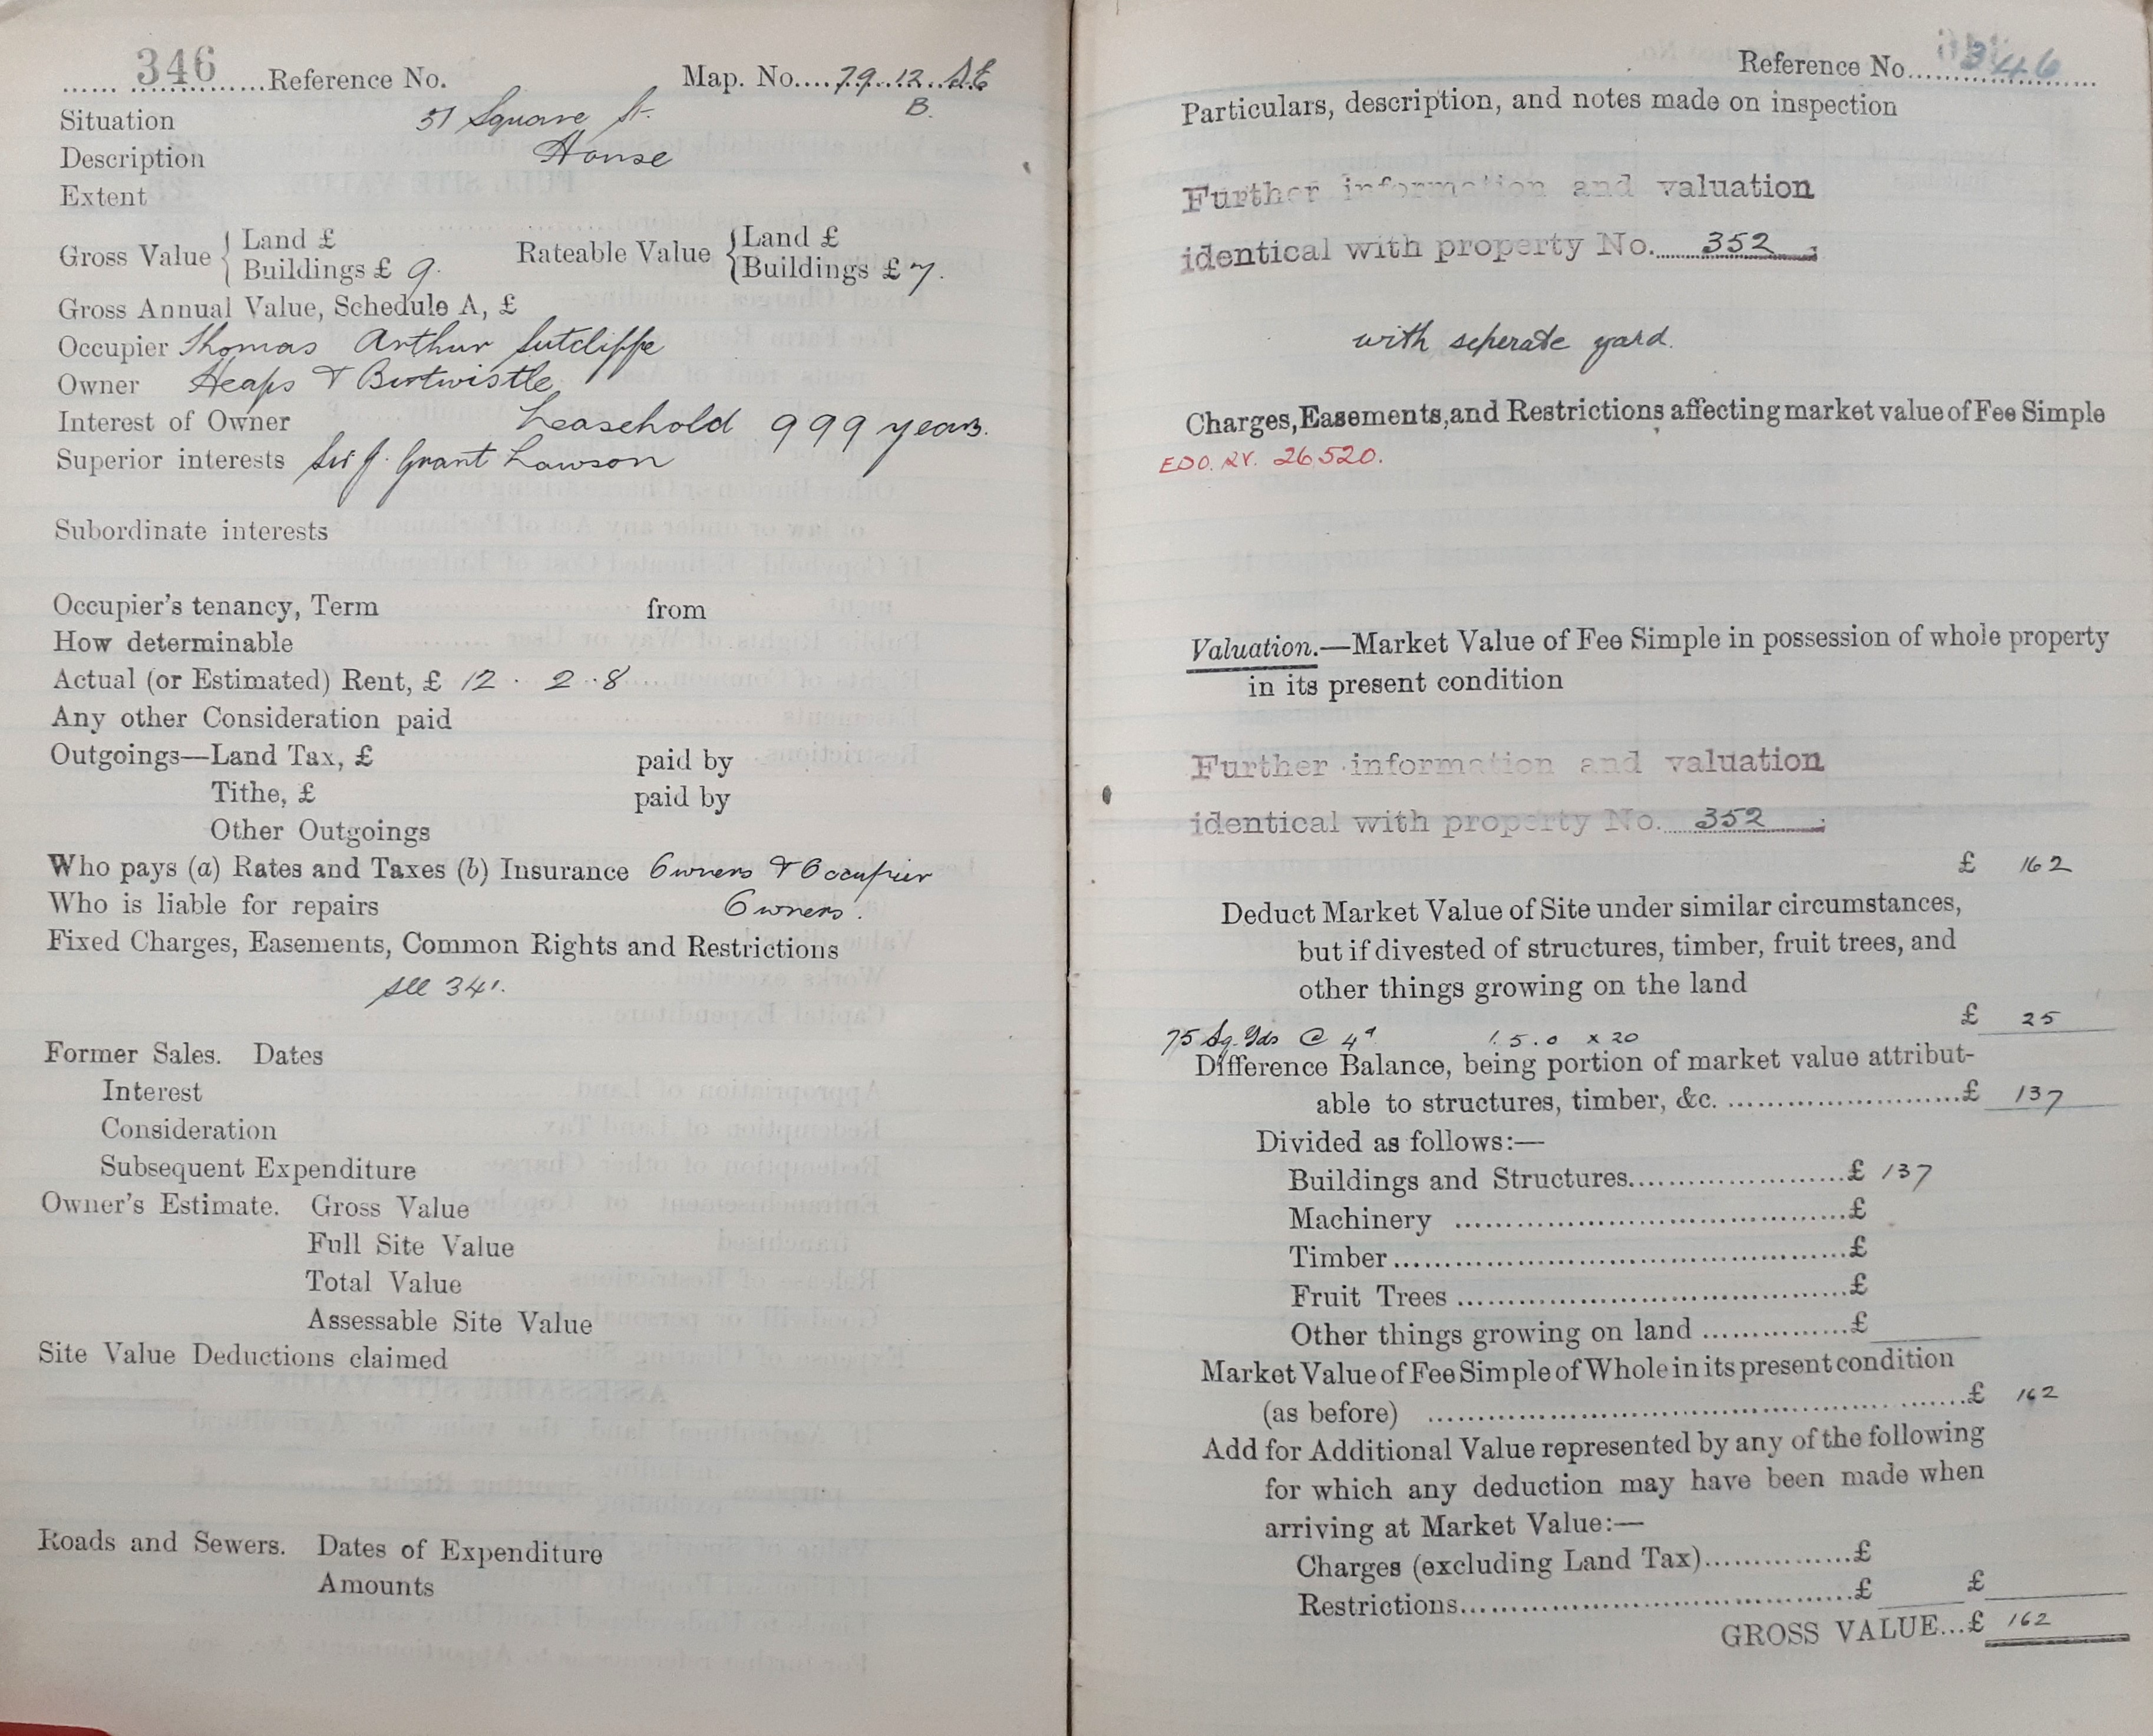 346 Reference No. Map. No. 79.12. S.E
B.
Situation 51 Square St.
Description House
Extent
Gross Value { Land £ Rateable Value { Land £
Buildings £ 9. Buildings £ 7.
Gross Annual Value, Schedule A, £
Occupier Thomas Arthur Sutcliffe
Owner Heaps & Birtwistle
Interest of Owner Leasehold 999 years.
Superior interests Sir J. Grant Lawson
Subordinate interests
Occupier's tenancy, Term from
How determinable
Actual (or Estimated) Rent, £ 12 . 2 . 8
Any other Consideration paid
Outgoings—Land Tax, £ paid by
Tithe, £ paid by
Other Outgoings
Who pays (a) Rates and Taxes (b) Insurance Owners & Occupier
Who is liable for repairs Owners.
Fixed Charges, Easements, Common Rights and Restrictions
See 341.
Former Sales. Dates
Interest
Consideration
Subsequent Expenditure
Owner's Estimate. Gross Value
Full Site Value
Total Value
Assessable Site Value
Site Value Deductions claimed
Roads and Sewers. Dates of Expenditure
Amounts
Reference No. 346
Particulars, description, and notes made on inspection
Further information and valuation
identical with property No. 352
with seperate yard.
Charges, Easements, and Restrictions affecting market value of Fee Simple
26520.
Valuation.—Market Value of Fee Simple in possession of whole property
in its present condition
Further information and valuation
identical with property No. 352
£ 162
Deduct Market Value of Site under similar circumstances,
but if divested of structures, timber, fruit trees, and
other things growing on the land
£ 25
75 Sq. Yds @ 4d 1.5.0 x 20
Difference Balance, being portion of market value attribut-
able to structures, timber, &c. £ 137
Divided as follows:—
Buildings and Structures £ 137
Machinery £
Timber £
Fruit Trees £
Other things growing on land £
Market Value of Fee Simple of Whole in its present condition
(as before) £ 162
Add for Additional Value represented by any of the following
for which any deduction may have been made when
arriving at Market Value:—
Charges (excluding Land Tax) £
Restrictions £ £
GROSS VALUE...£ 162